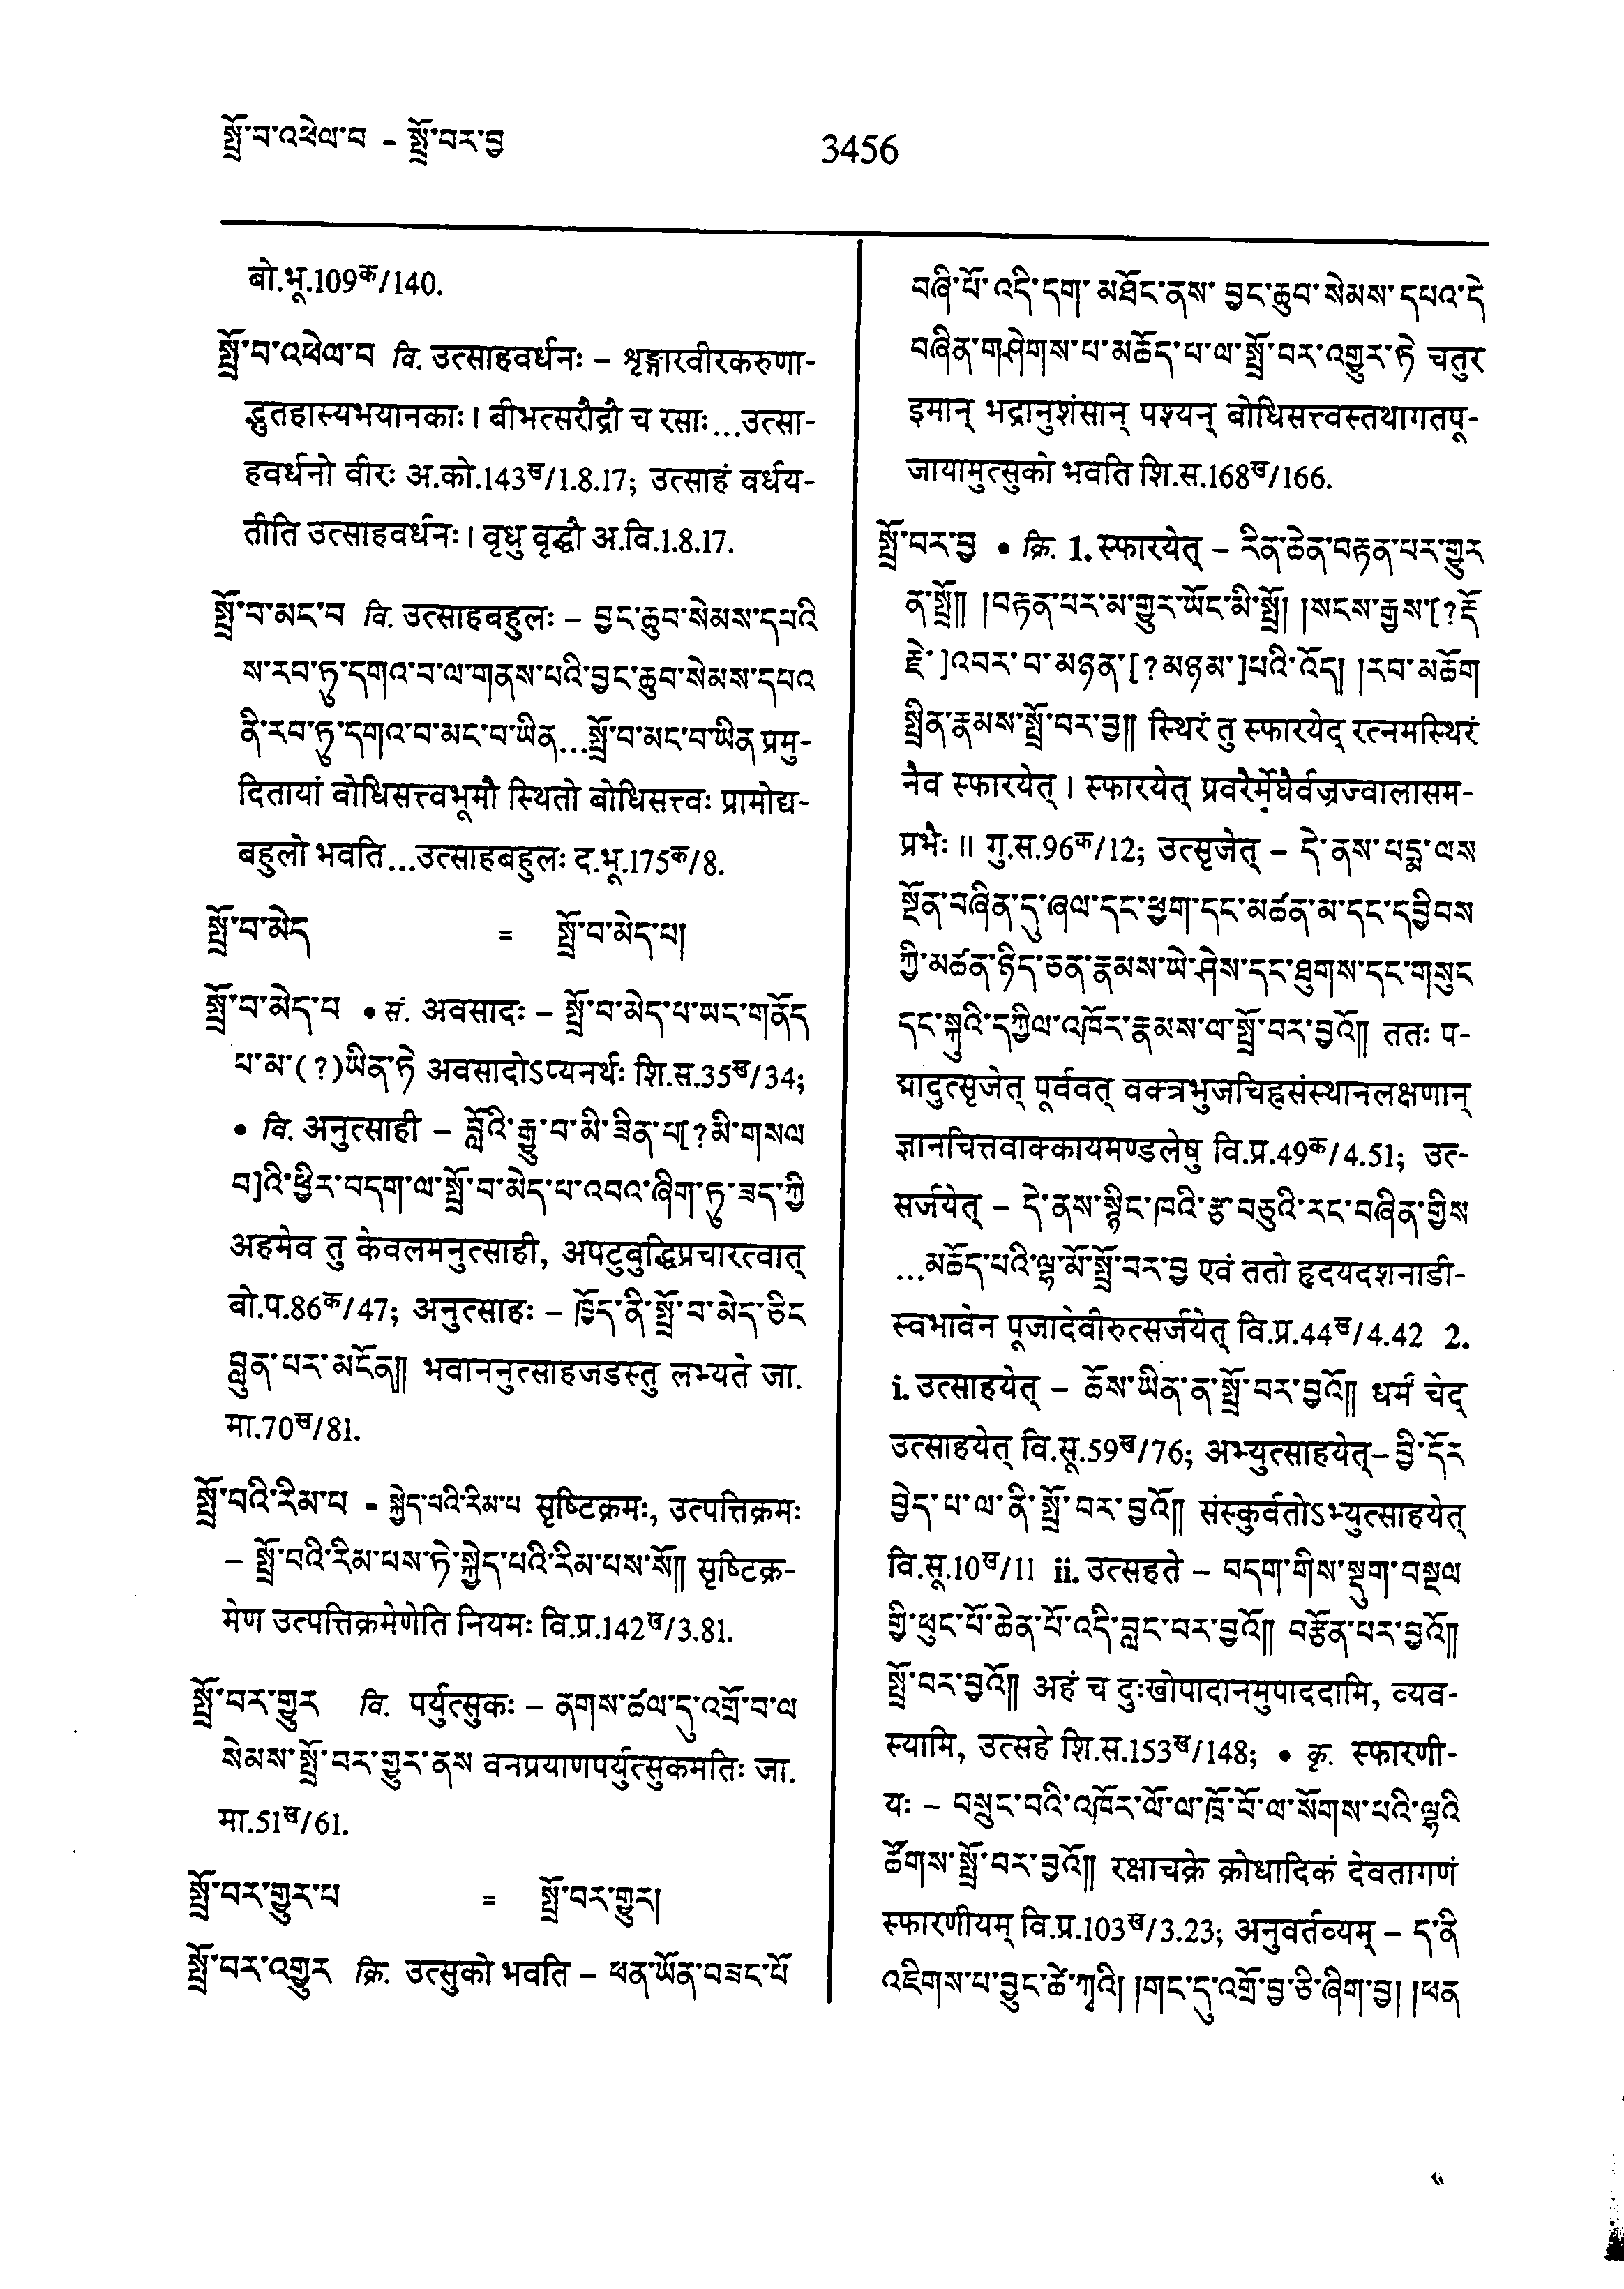 སྤྲོ་བ་འཕེལ་བ – སྤྲོ་བར་བྱ
3456
बो.भू.109क/140.
སྤྲོ་བ་འཕེལ་བ वि. उत्साहवर्धनः – शृङ्गारवीरकरुणा-
द्भुतहास्यभयानकाः। बीभत्सरौद्रौ च रसाः...उत्सा-
हवर्धनो वीरः अ.को.143ख/1.8.17; उत्साहं वर्धय-
तीति उत्साहवर्धनः। वृधु वृद्धौ अ.वि.1.8.17.
སྤྲོ་བ་མང་བ वि. उत्साहबहुलः – བྱང་ཆུབ་སེམས་དཔའི
ས་རབ་ཏུ་དགའ་བ་ལ་གནས་པའི་བྱང་ཆུབ་སེམས་དཔའ
ནི་རབ་ཏུ་དགའ་བ་མང་བ་ཡིན...སྤྲོ་བ་མང་བ་ཡིན प्रमु-
दितायां बोधिसत्त्वभूमौ स्थितो बोधिसत्त्वः प्रामोद्य-
बहुलो भवति...उत्साहबहुलः द.भू.175क/8.
སྤྲོ་བ་མེད = སྤྲོ་བ་མེད་པ།
སྤྲོ་བ་མེད་པ • सं. अवसादः – སྤྲོ་བ་མེད་པ་ཡང་གནོད
པ་མ་(?)ཡིན་ཏེ अवसादोऽप्यनर्थः शि.स.35ख/34;
• वि. अनुत्साही – བློའི་རྒྱུ་བ་མི་ཟིན་པ[?མི་གསལ
བ]འི་ཕྱིར་བདག་ལ་སྤྲོ་བ་མེད་པ་འབའ་ཞིག་ཏུ་ཟད་ཀྱི
अहमेव तु केवलमनुत्साही, अपटुबुद्धिप्रचारत्वात्
बो.प.86क/47; अनुत्साहः – ཁྱོད་ནི་སྤྲོ་བ་མེད་ཅིང
བླུན་པར་མངོན།། भवाननुत्साहजडस्तु लभ्यते जा.
मा.70ख/81.
སྤྲོ་བའི་རིམ་པ = སྐྱེད་པའི་རིམ་པ सृष्टिक्रमः, उत्पत्तिक्रमः
– སྤྲོ་བའི་རིམ་པས་ཏེ་སྐྱེད་པའི་རིམ་པས་སོ།། सृष्टिक्र-
मेण उत्पत्तिक्रमेणेति नियमः वि.प्र.142ख/3.81.
སྤྲོ་བར་གྱུར वि. पर्युत्सुकः – ནགས་ཚལ་དུ་འགྲོ་བ་ལ
སེམས་སྤྲོ་བར་གྱུར་ནས वनप्रयाणपर्युत्सुकमतिः जा.
मा.51ख/61.
སྤྲོ་བར་གྱུར་པ = སྤྲོ་བར་གྱུར།
སྤྲོ་བར་འགྱུར क्रि. उत्सुको भवति – ཕན་ཡོན་བཟང་པོ
བཞི་པོ་འདི་དག་མཐོང་ནས་བྱང་ཆུབ་སེམས་དཔའ་དེ
བཞིན་གཤེགས་པ་མཆོད་པ་ལ་སྤྲོ་བར་འགྱུར་ཏེ चतुर
इमान् भद्रानुशंसान् पश्यन् बोधिसत्त्वस्तथागतपू-
जायामुत्सुको भवति शि.स.168ख/166.
སྤྲོ་བར་བྱ • क्रि. 1. स्फारयेत् – རིན་ཆེན་བརྟན་པར་གྱུར
ན་སྤྲོ།། །བརྟན་པར་མ་གྱུར་ཡོང་མི་སྤྲོ། །སངས་རྒྱས་[?རྡོ
རྗེ་]འབར་བ་མཉན་[?མཉམ་]པའི་འོད། །རབ་མཆོག
སྤྲིན་རྣམས་སྤྲོ་བར་བྱ།། स्थिरं तु स्फारयेद् रत्नमस्थिरं
नैव स्फारयेत्। स्फारयेत् प्रवरैर्मेघैर्वज्रज्वालासम-
प्रभैः॥ गु.स.96क/12; उत्सृजेत् – དེ་ནས་པདྨ་ལས
སྔོན་བཞིན་དུ་ཞལ་དང་ཕྱག་དང་མཚན་མ་དང་དབྱིབས
ཀྱི་མཚན་ཉིད་ཅན་རྣམས་ཡེ་ཤེས་དང་ཐུགས་དང་གསུང
དང་སྐུའི་དཀྱིལ་འཁོར་རྣམས་ལ་སྤྲོ་བར་བྱའོ།། ततः प-
द्मादुत्सृजेत् पूर्ववत् वक्त्रभुजचिह्नसंस्थानलक्षणान्
ज्ञानचित्तवाक्कायमण्डलेषु वि.प्र.49क/4.51; उत्-
सर्जयेत् – དེ་ནས་སྙིང་ཁའི་རྩ་བཅུའི་རང་བཞིན་གྱིས
...མཆོད་པའི་ལྷ་མོ་སྤྲོ་བར་བྱ एवं ततो हृदयदशनाडी-
स्वभावेन पूजादेवीरुत्सर्जयेत् वि.प्र.44ख/4.42 2.
i. उत्साहयेत् – ཆོས་ཡིན་ན་སྤྲོ་བར་བྱའོ།། धर्मं चेद्
उत्साहयेत् वि.सू.59ख/76; अभ्युत्साहयेत्– བྱི་དོར
བྱེད་པ་ལ་ནི་སྤྲོ་བར་བྱའོ།། संस्कुर्वतोऽभ्युत्साहयेत्
वि.सू.10ख/11 ii. उत्सहते – བདག་གིས་སྡུག་བསྔལ
གྱི་ཕུང་པོ་ཆེན་པོ་འདི་བླང་བར་བྱའོ།། བརྩོན་པར་བྱའོ།།
སྤྲོ་བར་བྱའོ།། अहं च दुःखोपादानमुपाददामि, व्यव-
स्यामि, उत्सहे शि.स.153ख/148; • कृ. स्फारणी-
यः – བསྲུང་བའི་འཁོར་ལོ་ལ་ཁྲོ་བོ་ལ་སོགས་པའི་ལྷའི
ཚོགས་སྤྲོ་བར་བྱའོ།། रक्षाचक्रे क्रोधादिकं देवतागणं
स्फारणीयम् वि.प्र.103ख/3.23; अनुवर्तव्यम् – ད་ནི
འཇིགས་པ་བྱུང་ཚེ་ཀྭའི། །གང་དུ་འགྲོ་བྱ་ཅི་ཞིག་བྱ། །ཕན